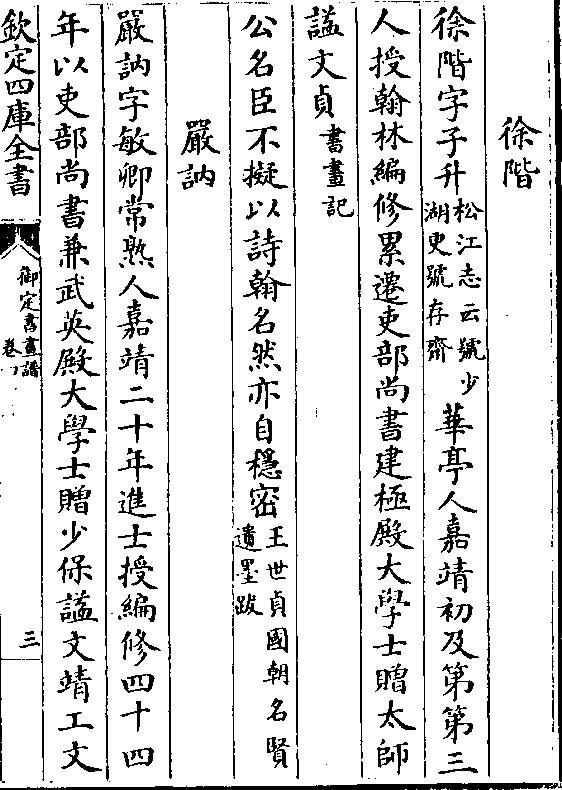 徐階
徐階字子升松江志云號少湖更號存齋華亭人嘉靖初及第第三
人授翰林編修累遷吏部尚書建極殿大學士贈太師
謚文貞書畫記
公名臣不擬以詩翰名然亦自穩密王世貞國朝名賢遺墨跋
嚴訥
嚴訥字敏卿常熟人嘉靖二十年進士授編修四十四
年以吏部尚書兼武英殿大學士贈少保謚文靖工文
欽定四庫全書
御定書畫譜
卷
三